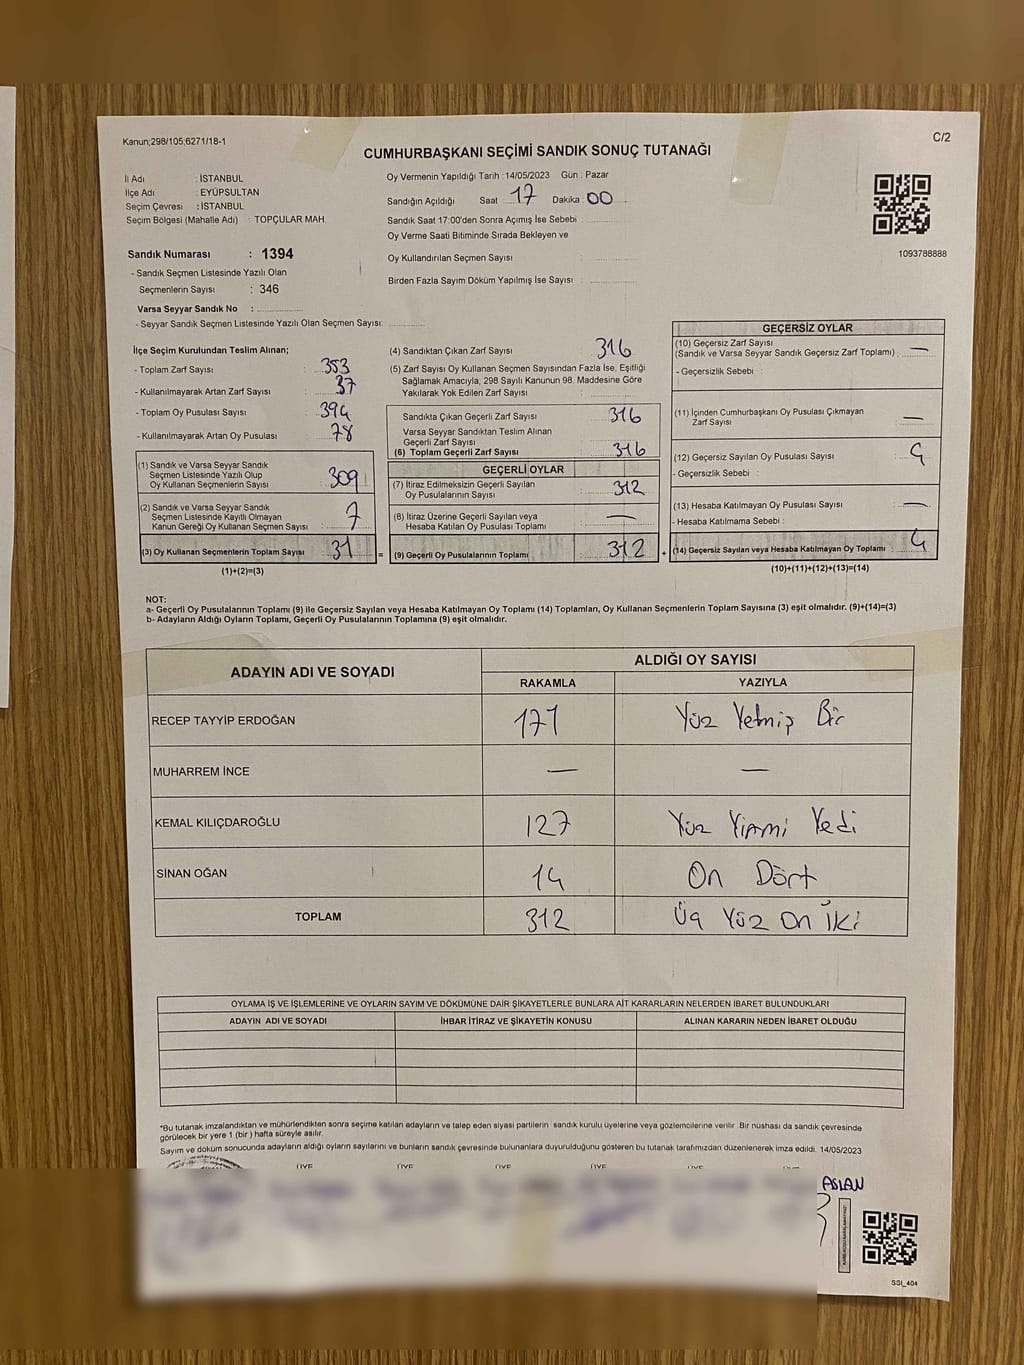 Kanun;298/105,6271/18-1
C/2
CUMHURBAŞKANI SEÇİMİ SANDIK SONUÇ TUTANAĞI
İl Adı : İSTANBUL
İlçe Adı : EYÜPSULTAN
Seçim Çevresi : İSTANBUL
Seçim Bölgesi (Mahalle Adı) : TOPÇULAR MAH.
Oy Vermenin Yapıldığı Tarih : 14/05/2023 Gün : Pazar
Sandığın Açıldığı Saat : 17 Dakika : 00
Sandık Saat 17:00'den Sonra Açımış İse Sebebi :
Oy Verme Saati Bitiminde Sırada Bekleyen ve
Oy Kullandırılan Seçmen Sayısı :
Birden Fazla Sayım Döküm Yapılmış İse Sayısı :
1093788888
Sandık Numarası : 1394
- Sandık Seçmen Listesinde Yazılı Olan
Seçmenlerin Sayısı : 346
Varsa Seyyar Sandık No :
- Seyyar Sandık Seçmen Listesinde Yazılı Olan Seçmen Sayısı:
İlçe Seçim Kurulundan Teslim Alınan;
- Toplam Zarf Sayısı : 353
- Kullanılmayarak Artan Zarf Sayısı : 37
- Toplam Oy Pusulası Sayısı : 394
- Kullanılmayarak Artan Oy Pusulası : 78
(1) Sandık ve Varsa Seyyar Sandık
Seçmen Listesinde Yazılı Olup
Oy Kullanan Seçmenlerin Sayısı : 309
(2) Sandık ve Varsa Seyyar Sandık
Seçmen Listesinde Kayıtlı Olmayan
Kanun Gereği Oy Kullanan Seçmen Sayısı : 7
(3) Oy Kullanan Seçmenlerin Toplam Sayısı : 31 =
(1)+(2)=(3)
(4) Sandıktan Çıkan Zarf Sayısı : 316
(5) Zarf Sayısı Oy Kullanan Seçmen Sayısından Fazla İse, Eşitliği
Sağlamak Amacıyla, 298 Sayılı Kanunun 98. Maddesine Göre
Yakılarak Yok Edilen Zarf Sayısı :
Sandıkta Çıkan Geçerli Zarf Sayısı : 316
Varsa Seyyar Sandıktan Teslim Alınan
Geçerli Zarf Sayısı :
(6) Toplam Geçerli Zarf Sayısı : 316
GEÇERLİ OYLAR
(7) İtiraz Edilmeksizin Geçerli Sayılan
Oy Pusulalarının Sayısı : 312
(8) İtiraz Üzerine Geçerli Sayılan veya
Hesaba Katılan Oy Pusulası Toplamı : —
(9) Geçerli Oy Pusulalarının Toplamı : 312 +
GEÇERSİZ OYLAR
(10) Geçersiz Zarf Sayısı
(Sandık ve Varsa Seyyar Sandık Geçersiz Zarf Toplamı) : —
- Geçersizlik Sebebi :
(11) İçinden Cumhurbaşkanı Oy Pusulası Çıkmayan
Zarf Sayısı : —
(12) Geçersiz Sayılan Oy Pusulası Sayısı : 4
- Geçersizlik Sebebi :
(13) Hesaba Katılmayan Oy Pusulası Sayısı : —
- Hesaba Katılmama Sebebi :
(14) Geçersiz Sayılan veya Hesaba Katılmayan Oy Toplamı : 4
(10)+(11)+(12)+(13)=(14)
NOT:
a- Geçerli Oy Pusulalarının Toplamı (9) ile Geçersiz Sayılan veya Hesaba Katılmayan Oy Toplamı (14) Toplamları, Oy Kullanan Seçmenlerin Toplam Sayısına (3) eşit olmalıdır. (9)+(14)=(3)
b- Adayların Aldığı Oyların Toplamı, Geçerli Oy Pusulalarının Toplamına (9) eşit olmalıdır.
ADAYIN ADI VE SOYADI
ALDIĞI OY SAYISI
RAKAMLA YAZIYLA
RECEP TAYYİP ERDOĞAN 171 Yüz Yetmiş Bir
MUHARREM İNCE — —
KEMAL KILIÇDAROĞLU 127 Yüz Yirmi Yedi
SİNAN OĞAN 14 On Dört
TOPLAM 312 Üç Yüz On İki
OYLAMA İŞ VE İŞLEMLERİNE VE OYLARIN SAYIM VE DÖKÜMÜNE DAİR ŞİKAYETLERLE BUNLARA AİT KARARLARIN NELERDEN İBARET BULUNDUKLARI
ADAYIN ADI VE SOYADI İHBAR İTİRAZ VE ŞİKAYETİN KONUSU ALINAN KARARIN NEDEN İBARET OLDUĞU
*Bu tutanak imzalandıktan ve mühürlendikten sonra seçime katılan adayların ve talep eden siyasi partilerin sandık kurulu üyelerine veya gözlemcilerine verilir. Bir nüshası da sandık çevresinde
görülecek bir yere 1 (bir) hafta süreyle asılır.
Sayım ve döküm sonucunda adayların aldığı oyların sayılarını ve bunların sandık çevresinde bulunanlara duyurulduğunu gösteren bu tutanak tarafımızdan düzenlenerek imza edildi. 14/05/2023
ÜYE ÜYE ÜYE ÜYE ÜYE
ASLAN
SSI_404